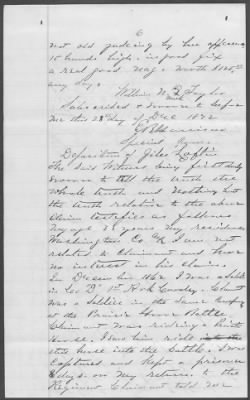 6
not old judging by her appearance
15 hands high. in good fix
a real good nag. worth $125.00
any day.
William W. Taylor
mark
Subscribed & sworn to before
me this 28 day of Dec 1872
Special Agent
Deposition of Giles Loftin
The said Witness being first duly
sworn to tell the truth the
whole truth and nothing but
the truth relative to the above
Claim testifies as follows
My age 28 years my residence
Washington Co Ark I am not
related to Claimant and have
no interest in his claim.
In December 1862 I was a soldier
in Co D 1st Ark Cavalry. Claimt
was a Soldier in the same Company
at the Prairie Grove Battle
Claimant was riding a
horse. I saw him ride
his horse into the battle. I was
Captured and kept a prisoner
days. on my return to the
Regiment Claimant told me